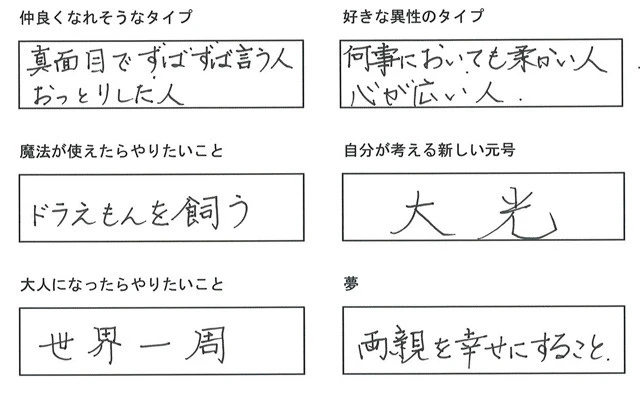 仲良くなれそうなタイプ
真面目でずばずば言う人
おっとりした人
好きな異性のタイプ
何事においても柔かい人
心が広い人.
魔法が使えたらやりたいこと
ドラえもんを飼う
自分が考える新しい元号
大光
大人になったらやりたいこと
世界一周
夢
両親を幸せにすること.